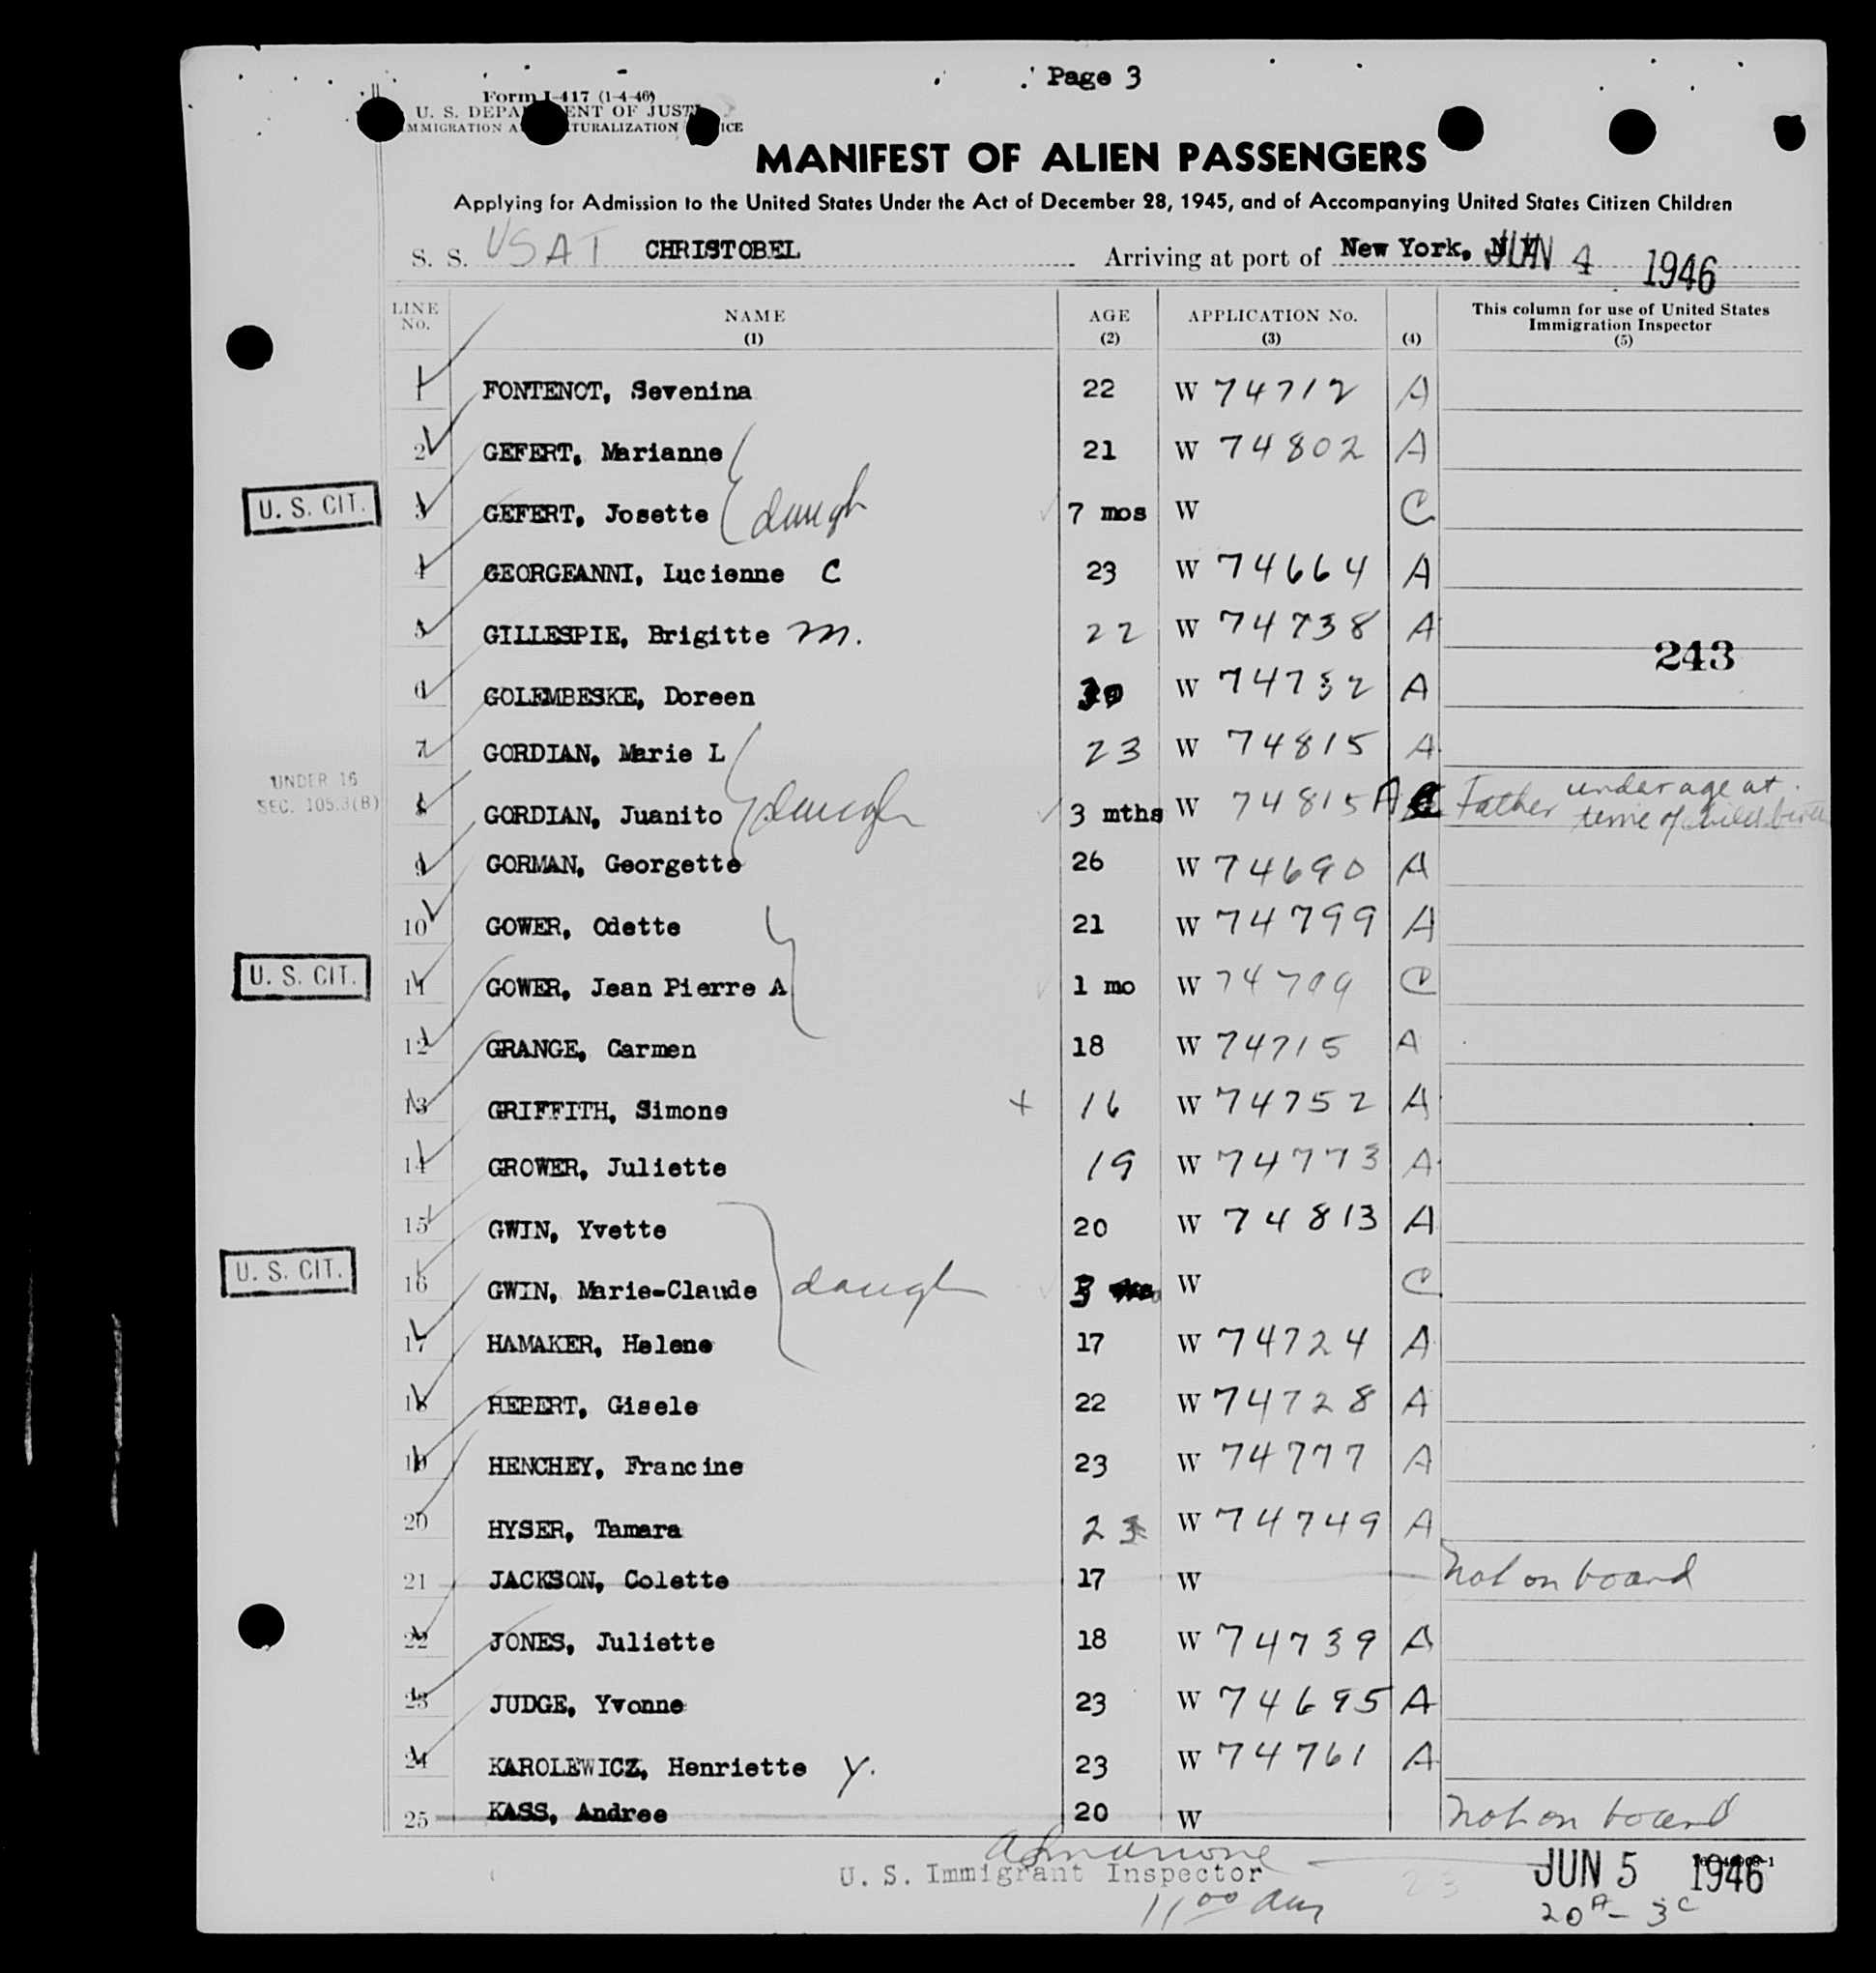 Page 3
Form I-417 (1-4-46)
U. S. DEPA ENT OF JUST
MMIGRATION A TURALIZATION ICE
MANIFEST OF ALIEN PASSENGERS
Applying for Admission to the United States Under the Act of December 28, 1945, and of Accompanying United States Citizen Children
S. S. USAT CHRISTOBEL Arriving at port of New York, N.Y. JUN 4 1946
LINE No. NAME (1) AGE (2) APPLICATION No. (3) (4) This column for use of United States Immigration Inspector (5)
1 FONTENOT, Sevenina 22 W 74712 A
2 GEFERT, Marianne 21 W 74802 A
U. S. CIT. 3 GEFERT, Josette daugh 7 mos W C
4 GEORGEANNI, Lucienne C 23 W 74664 A
5 GILLESPIE, Brigitte M. 22 W 74738 A
243
6 GOLEMBESKE, Doreen W 74732 A
7 GORDIAN, Marie L 23 W 74815 A
UNDER 16
SEC. 105.3(B)
8 GORDIAN, Juanito daugh 3 mths W 74815 A Father under age at time of child birth
9 GORMAN, Georgette 26 W 74690 A
10 GOWER, Odette 21 W 74799 A
U. S. CIT. 11 GOWER, Jean Pierre A 1 mo W 74799 C
12 GRANGE, Carmen 18 W 74715 A
13 GRIFFITH, Simone + 16 W 74752 A
14 GROWER, Juliette 19 W 74773 A
15 GWIN, Yvette 20 W 74813 A
U. S. CIT. 16 GWIN, Marie-Claude daugh 3 W C
17 HAMAKER, Helene 17 W 74724 A
18 HEBERT, Gisele 22 W 74728 A
19 HENCHEY, Francine 23 W 74777 A
20 HYSER, Tamara 23 W 74749 A
21 JACKSON, Colette 17 W not on board
22 JONES, Juliette 18 W 74739 A
23 JUDGE, Yvonne 23 W 74695 A
24 KAROLEWICZ, Henriette Y. 23 W 74761 A
25 KASS, Andree 20 W not on board
U. S. Immigrant Inspector 23 JUN 5 1946
11 00 am 20 A - 3 C